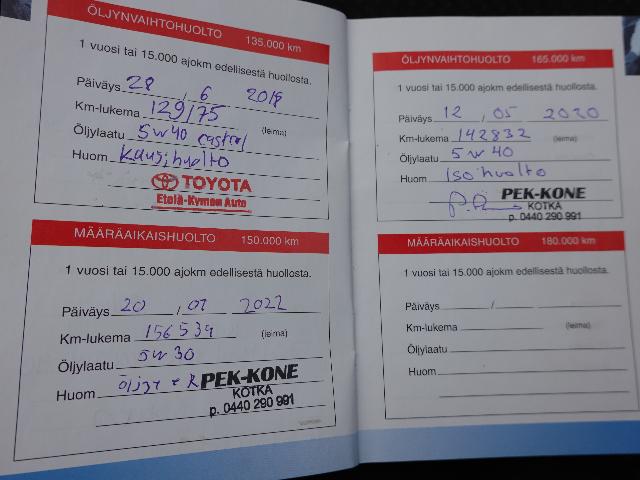 ÖLJYNVAIHTOHUOLTO 135.000 km
1 vuosi tai 15.000 ajokm edellisestä huollosta.
Päiväys 28 / 6 2018
Km-lukema 129175
(leima)
Öljylaatu 5w40 castrol
Huom Kausihuolto
TOYOTA
Etelä-Kymen Auto
MÄÄRÄAIKAISHUOLTO 150.000 km
1 vuosi tai 15.000 ajokm edellisestä huollosta.
Päiväys 20 / 07 2022
Km-lukema 156534 (leima)
Öljylaatu 5w30
Huom öljyt +
PEK-KONE
KOTKA
p. 0440 290 991
ÖLJYNVAIHTOHUOLTO 165.000 km
1 vuosi tai 15.000 ajokm edellisestä huollosta.
Päiväys 12 / 05 2020
Km-lukema 142832 (leima)
Öljylaatu 5w40
Huom Iso huolto
PEK-KONE
KOTKA
p. 0440 290 991
MÄÄRÄAIKAISHUOLTO 180.000 km
1 vuosi tai 15.000 ajokm edellisestä huollosta.
Päiväys /
Km-lukema (leima)
Öljylaatu
Huom